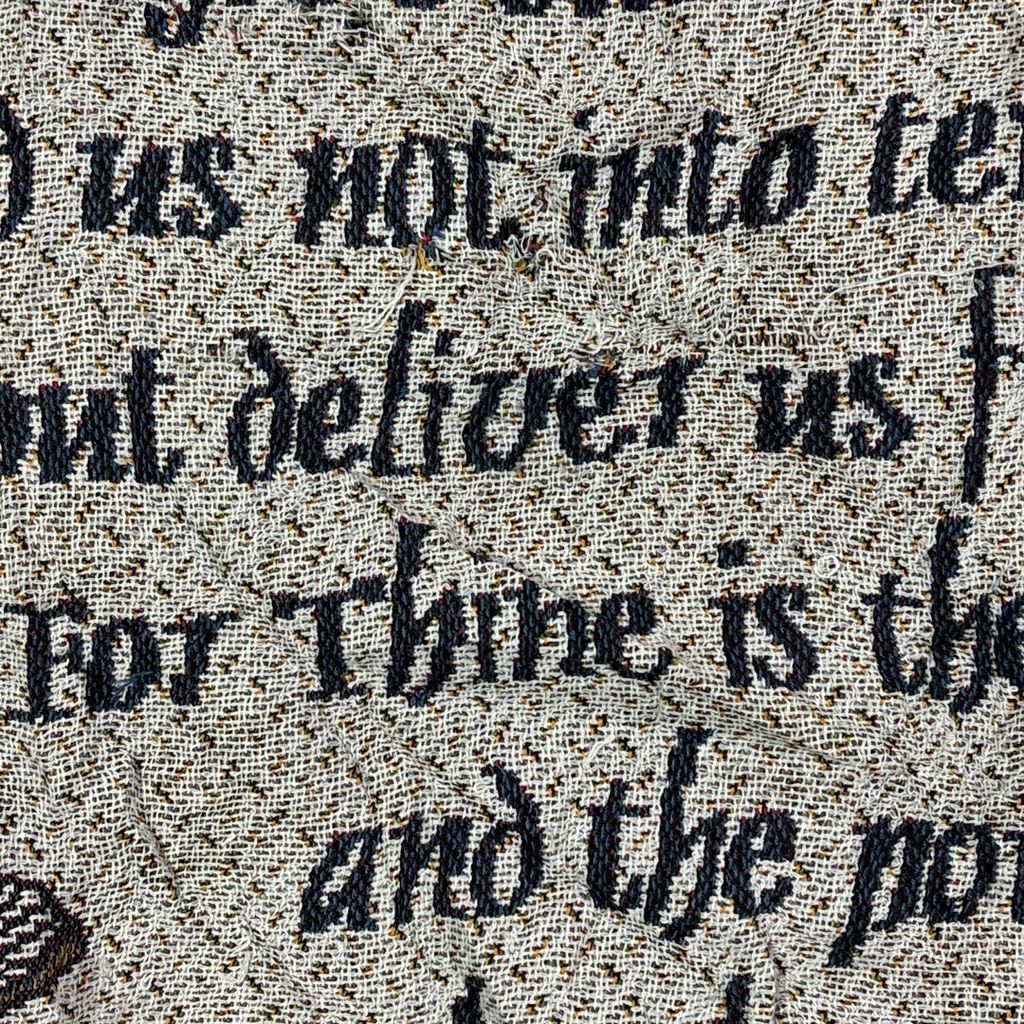 us not into
but deliver us
For Thine is the
and the